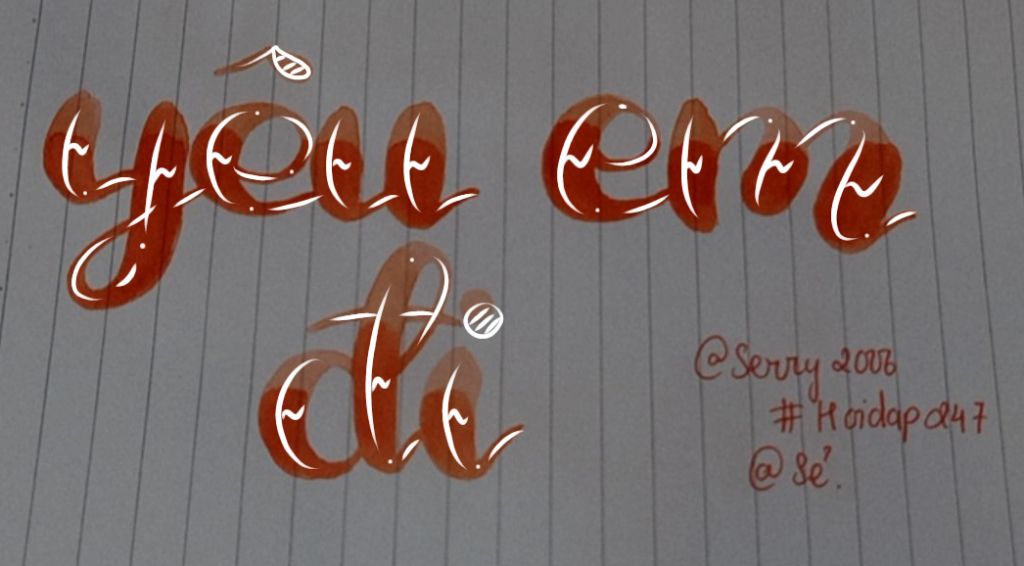 yêu em
đi
@Serry 2006
#Hoidap247
@Sẻ.